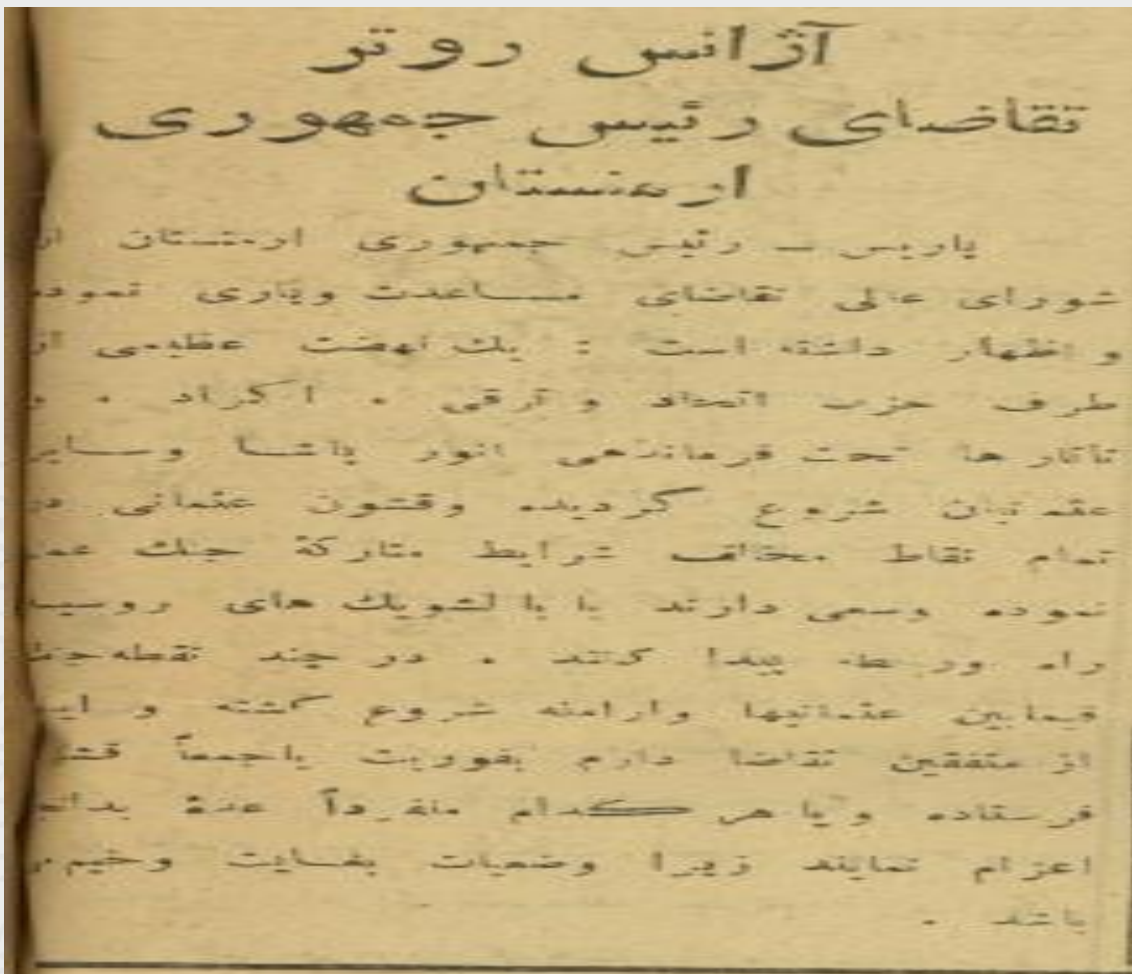 آژانس روتر
تقاضای رئیس جمهوری
ارمنستان
پاریس – رئیس جمهوری ارمنستان از
شورای عالی تقاضای مساعدت ویاری نموده
و اظهار داشته است : یك نهضت عظیمی از
طرف حزب اتحاد و ترقی . اکراد . و
تاتار ها تحت فرماندهی انور پاشا وسایر
عثمانیان شروع گردیده وقشون عثمانی در
تمام نقاط مخالف شرایط متارکۀ جنك عمل
نموده وسعی دارند با با لشویك های روسیه
راه وربطه پیدا کنند . در چند نقطه جنك
فیمابین عثمانیها وارامنه شروع گشته و
از متفقین تقاضا دارم بفوریت یاجمعاً
فرستاده ویا هر کدام منفرداً عدۀ بدانجا
اعزام نمایند زیرا وضعیات بغایت وخیم
باشد .